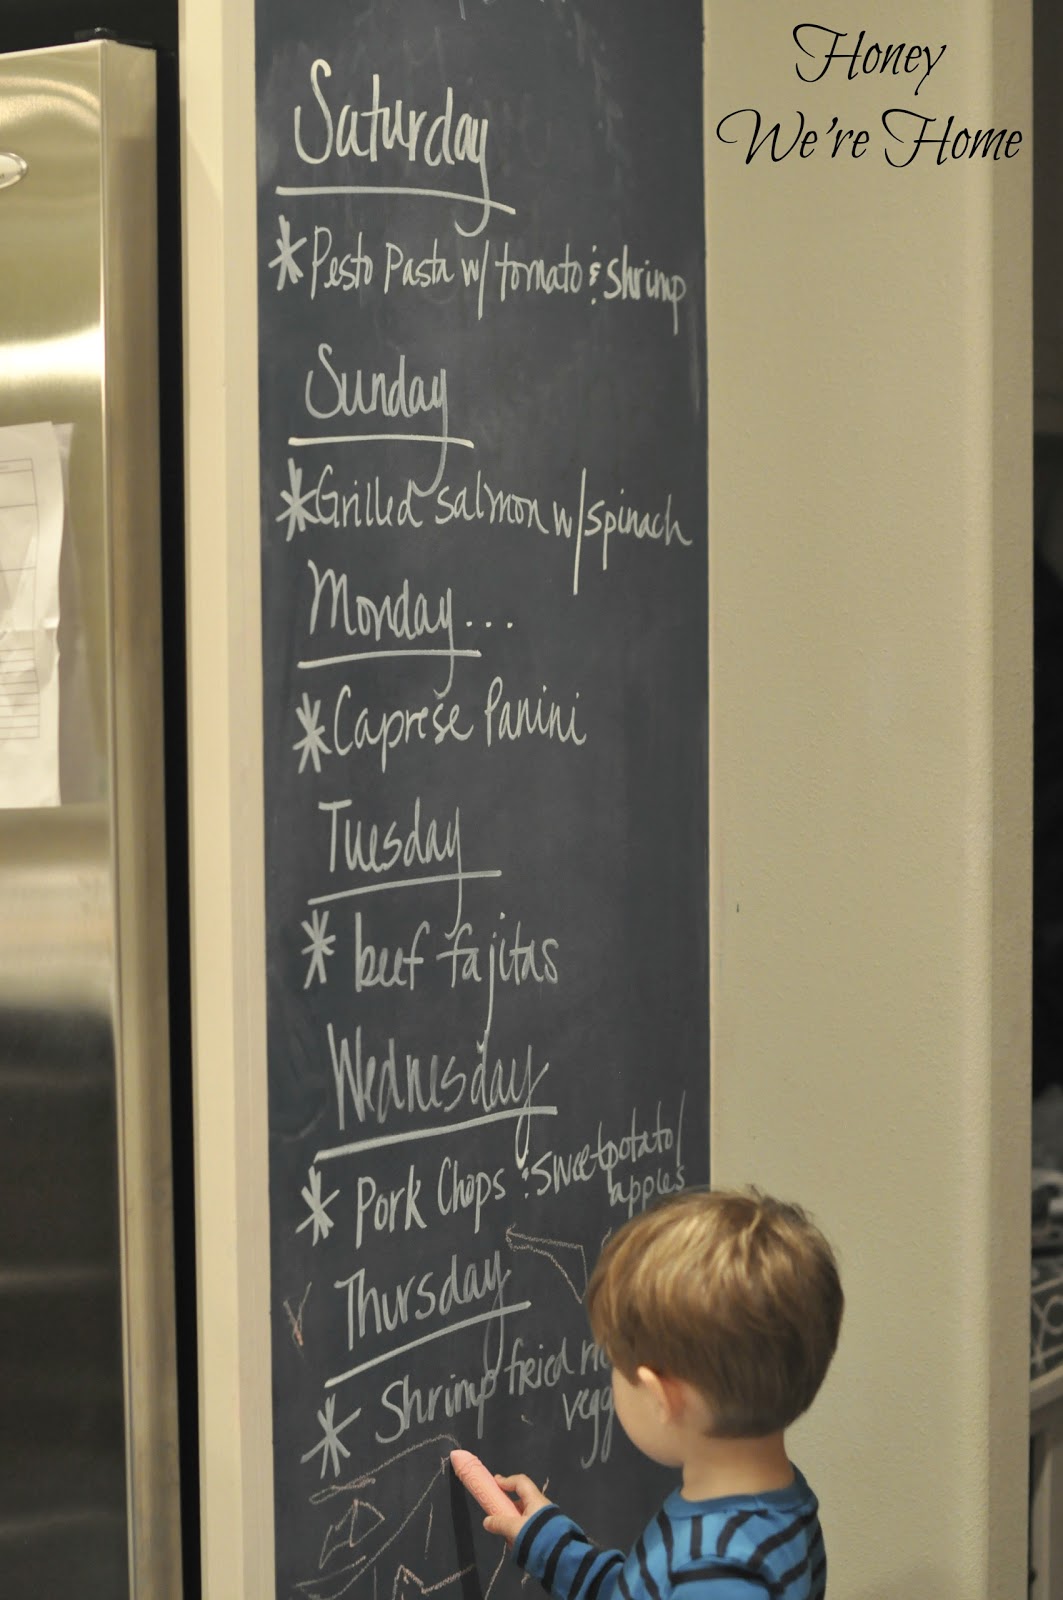 Honey
We're Home
Saturday
* Pesto Pasta w/ tomato & shrimp
Sunday
* Grilled salmon w/ spinach
Monday...
* Caprese Panini
Tuesday
* beef fajitas
Wednesday
* Pork Chops & sweet potato/
apples
Thursday
* Shrimp fried